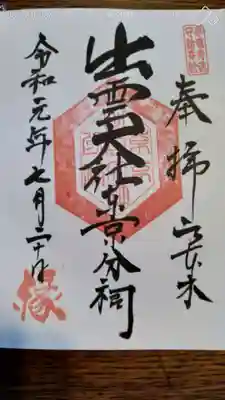 奉拝 六本木
出雲大社東京分祠
令和元年七月二十日
縁